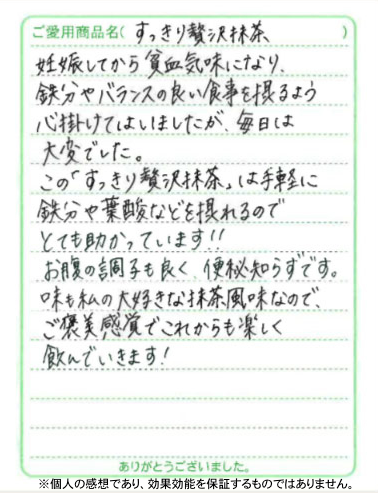 ご愛用商品名( すっきり贅沢抹茶、 )
妊娠してから貧血気味になり、
鉄分やバランスの良い食事を摂るよう
心掛けてはいましたが、毎日は
大変でした。
この「すっきり贅沢抹茶」は手軽に
鉄分や葉酸などを摂れるので
とても助かっています!!
お腹の調子も良く、便秘知らずです。
味も私の大好きな抹茶風味なので、
ご褒美感覚でこれからも楽しく
飲んでいきます!
ありがとうございました。
※個人の感想であり、効果効能を保証するものではありません。